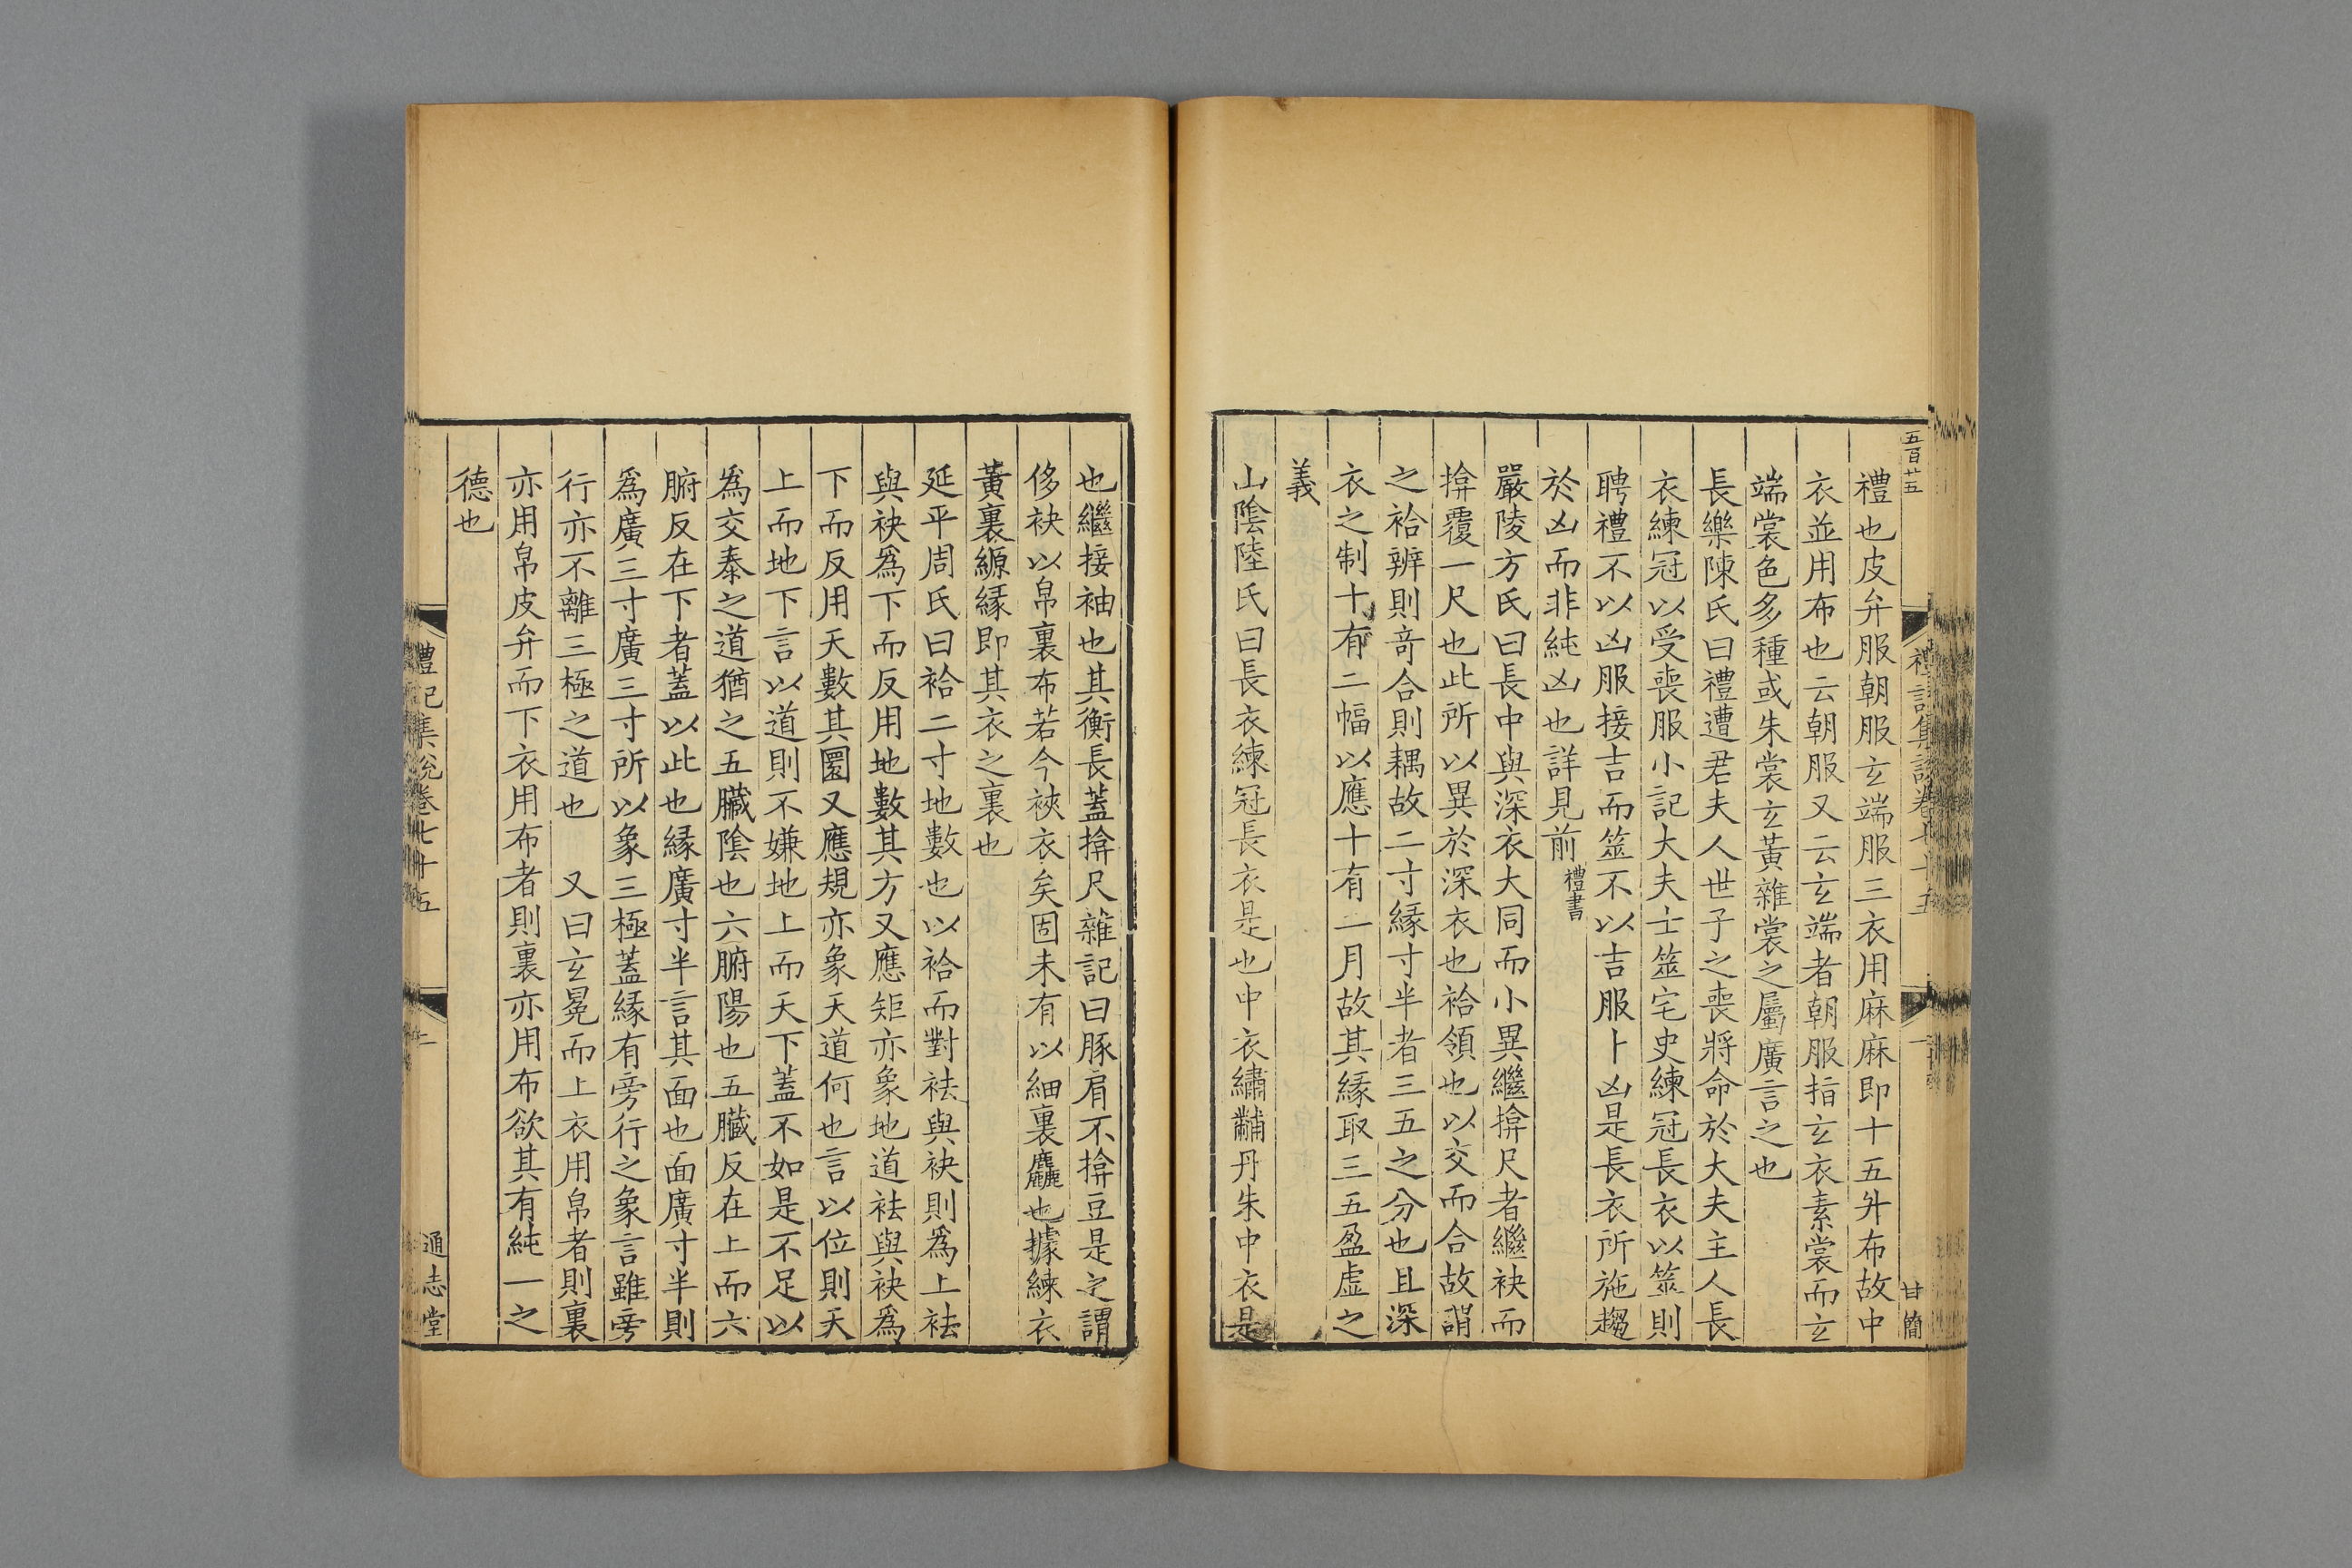 五百廿五
禮記集說卷七十五
一
甘簡
禮也皮弁服朝服玄端服三衣用麻麻即十五升布故中
衣並用布也云朝服又云玄端者朝服指玄衣素裳而玄
端裳色多種或朱裳玄黃雜裳之屬廣言之也
長樂陳氏曰禮遭君夫人世子之喪將命於大夫主人長
衣練冠以受喪服小記大夫士筮宅史練冠長衣以筮則
聘禮不以凶服接吉而筮不以吉服卜凶是長衣所施趨
於凶而非純凶也詳見前禮書
嚴陵方氏曰長中與深衣大同而小異繼揜尺者繼袂而
揜覆一尺也此所以異於深衣也袷領也以交而合故謂
之袷辨則竒合則耦故二寸緣寸半者三五之分也且深
衣之制十有二幅以應十有二月故其緣取三五盈虛之
義
山陰陸氏曰長衣練冠長衣是也中衣繡黼丹朱中衣是
也繼接袖也其衡長蓋揜尺雜記曰豚肩不揜豆是之謂
侈袂以帛裏布若今裌衣矣固未有以細裏麤也據練衣
黃裏縓緣即其衣之裏也
延平周氏曰袷二寸地數也以袷而對袪與袂則爲上袪
與袂爲下而反用地數其方又應矩亦象地道袪與袂爲
下而反用天數其圜又應規亦象天道何也言以位則天
上而地下言以道則不嫌地上而天下蓋不如是不足以
爲交泰之道猶之五臟陰也六腑陽也五臟反在上而六
腑反在下者蓋以此也緣廣寸半言其面也面廣寸半則
爲廣三寸廣三寸所以象三極蓋緣有旁行之象言雖旁
行亦不離三極之道也　又曰玄冕而上衣用帛者則裏
亦用帛皮弁而下衣用布者則裏亦用布欲其有純一之
德也
禮記集說卷七十五
二
通志堂